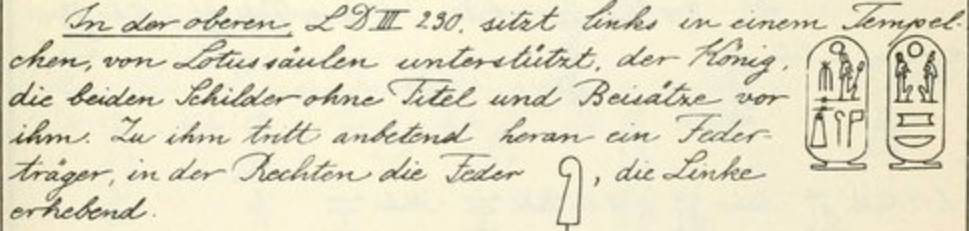 In der oberen, L D III 230. sitzt links in einem Tempel-
chen, von Lotussäulen unterstützt, der König,
die beiden Schilder ohne Titel und Beisätze vor
ihm. Zu ihm tritt anbetend heran ein Feder-
träger, in der Rechten die Feder , die Linke
erhebend.